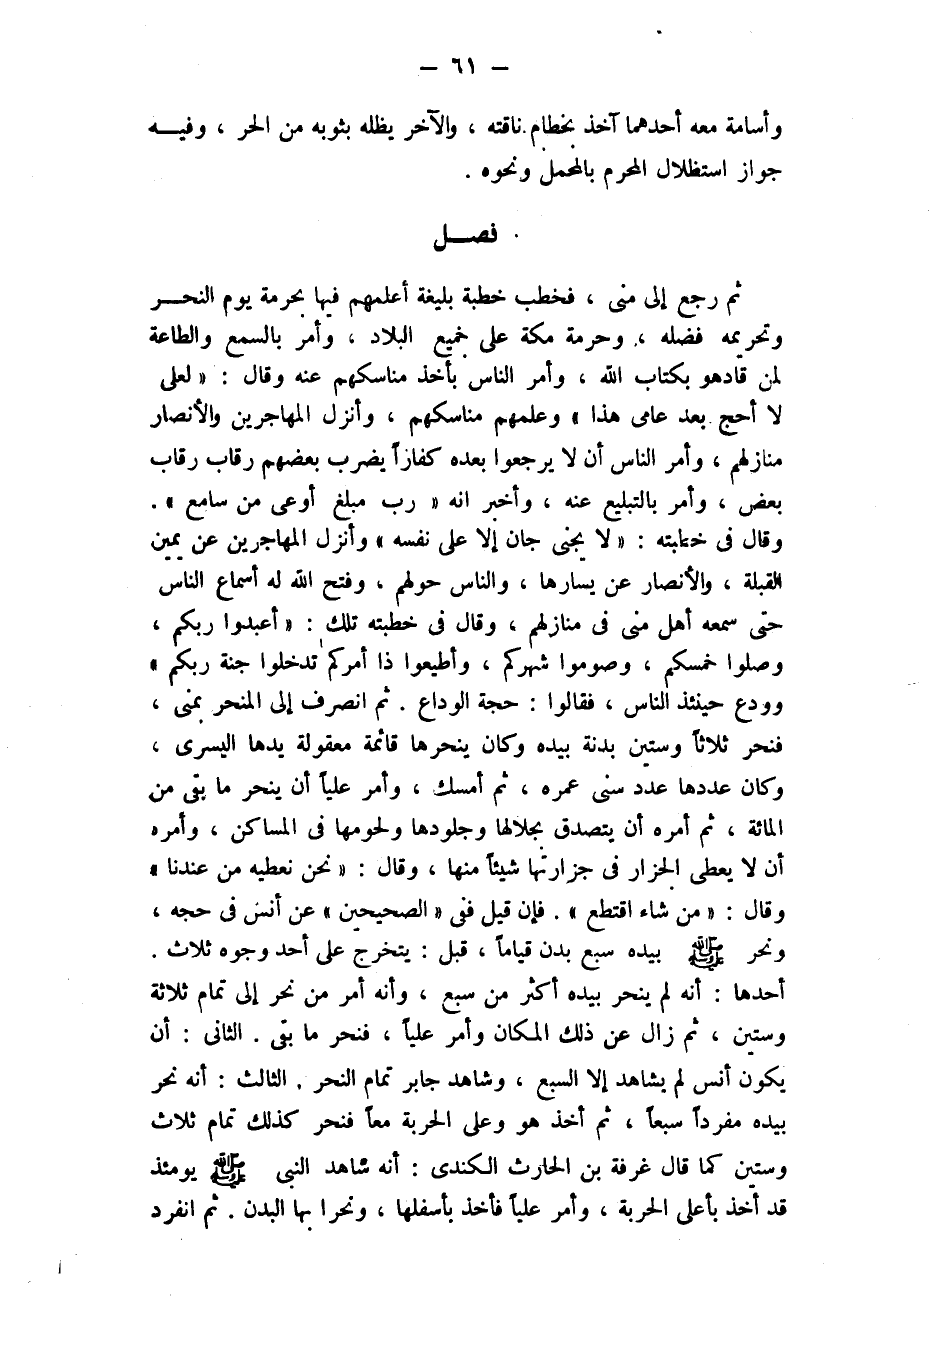 — ٦١ —
وأسامة معه أحدهما آخذ بخطام ناقته ، والآخر يظله بثوبه من الحر ، وفيـــه
جواز استظلال المحرم بالمحمل ونحوه .
فصـــل
ثم رجع إلى منى ، فخطب خطبة بليغة أعلمهم فيها بحرمة يوم النحـــر
وتحريمه فضله ، وحرمة مكة على جميع البلاد ، وأمر بالسمع والطاعة
لمن قادهو بكتاب الله ، وأمر الناس بأخذ مناسكهم عنه وقال : « لعلى
لا أحج بعد عامى هذا » وعلمهم مناسكهم ، وأنزل المهاجرين والأنصار
منازلهم ، وأمر الناس أن لا يرجعوا بعده كفاراً يضرب بعضهم رقاب رقاب
بعض ، وأمر بالتبليغ عنه ، وأخبر انه « رب مبلغ أوعى من سامع » .
وقال فى خطبته : « لا يجنى جان إلا على نفسه » وأنزل المهاجرين عن يمين
القبلة ، والأنصار عن يسارها ، والناس حولهم ، وفتح الله له أسماع الناس
حتى سمعه أهل منى فى منازلهم ، وقال فى خطبته تلك : « أعبدوا ربكم ،
وصلوا خمسكم ، وصوموا شهركم ، وأطيعوا ذا أمركم تدخلوا جنة ربكم »
وودع حينئذ الناس ، فقالوا : حجة الوداع . ثم انصرف إلى المنحر بمنى ،
فنحر ثلاثاً وستين بدنة بيده وكان ينحرها قائمة معقولة يدها اليسرى ،
وكان عددها عدد سنى عمره ، ثم أمسك ، وأمر علياً أن ينحر ما بقى من
المائة ، ثم أمره أن يتصدق بجلالها وجلودها ولحومها فى المساكن ، وأمره
أن لا يعطى الجزار فى جزارتها شيئاً منها ، وقال : « نحن نعطيه من عندنا »
وقال : « من شاء اقتطع » . فإن قيل ففى « الصحيحين » عن أنس فى حجه ،
ونحر ﷺ بيده سبع بدن قياماً ، قبل : يتخرج على أحد وجوه ثلاث .
أحدها : أنه لم ينحر بيده أكثر من سبع ، وأنه أمر من نحر إلى تمام ثلاثة
وستين ، ثم زال عن ذلك المكان وأمر علياً ، فنحر ما بقى . الثانى : أن
يكون أنس لم يشاهد إلا السبع ، وشاهد جابر تمام النحر . الثالث : أنه نحر
بيده مفرداً سبعاً ، ثم أخذ هو وعلى الحربة معاً فنحر كذلك تمام ثلاث
وستين كما قال غرفة بن الحارث الكندى : أنه شاهد النبى ﷺ يومئذ
قد أخذ بأعلى الحربة ، وأمر علياً فأخذ بأسفلها ، ونحرا بها البدن . ثم انفرد